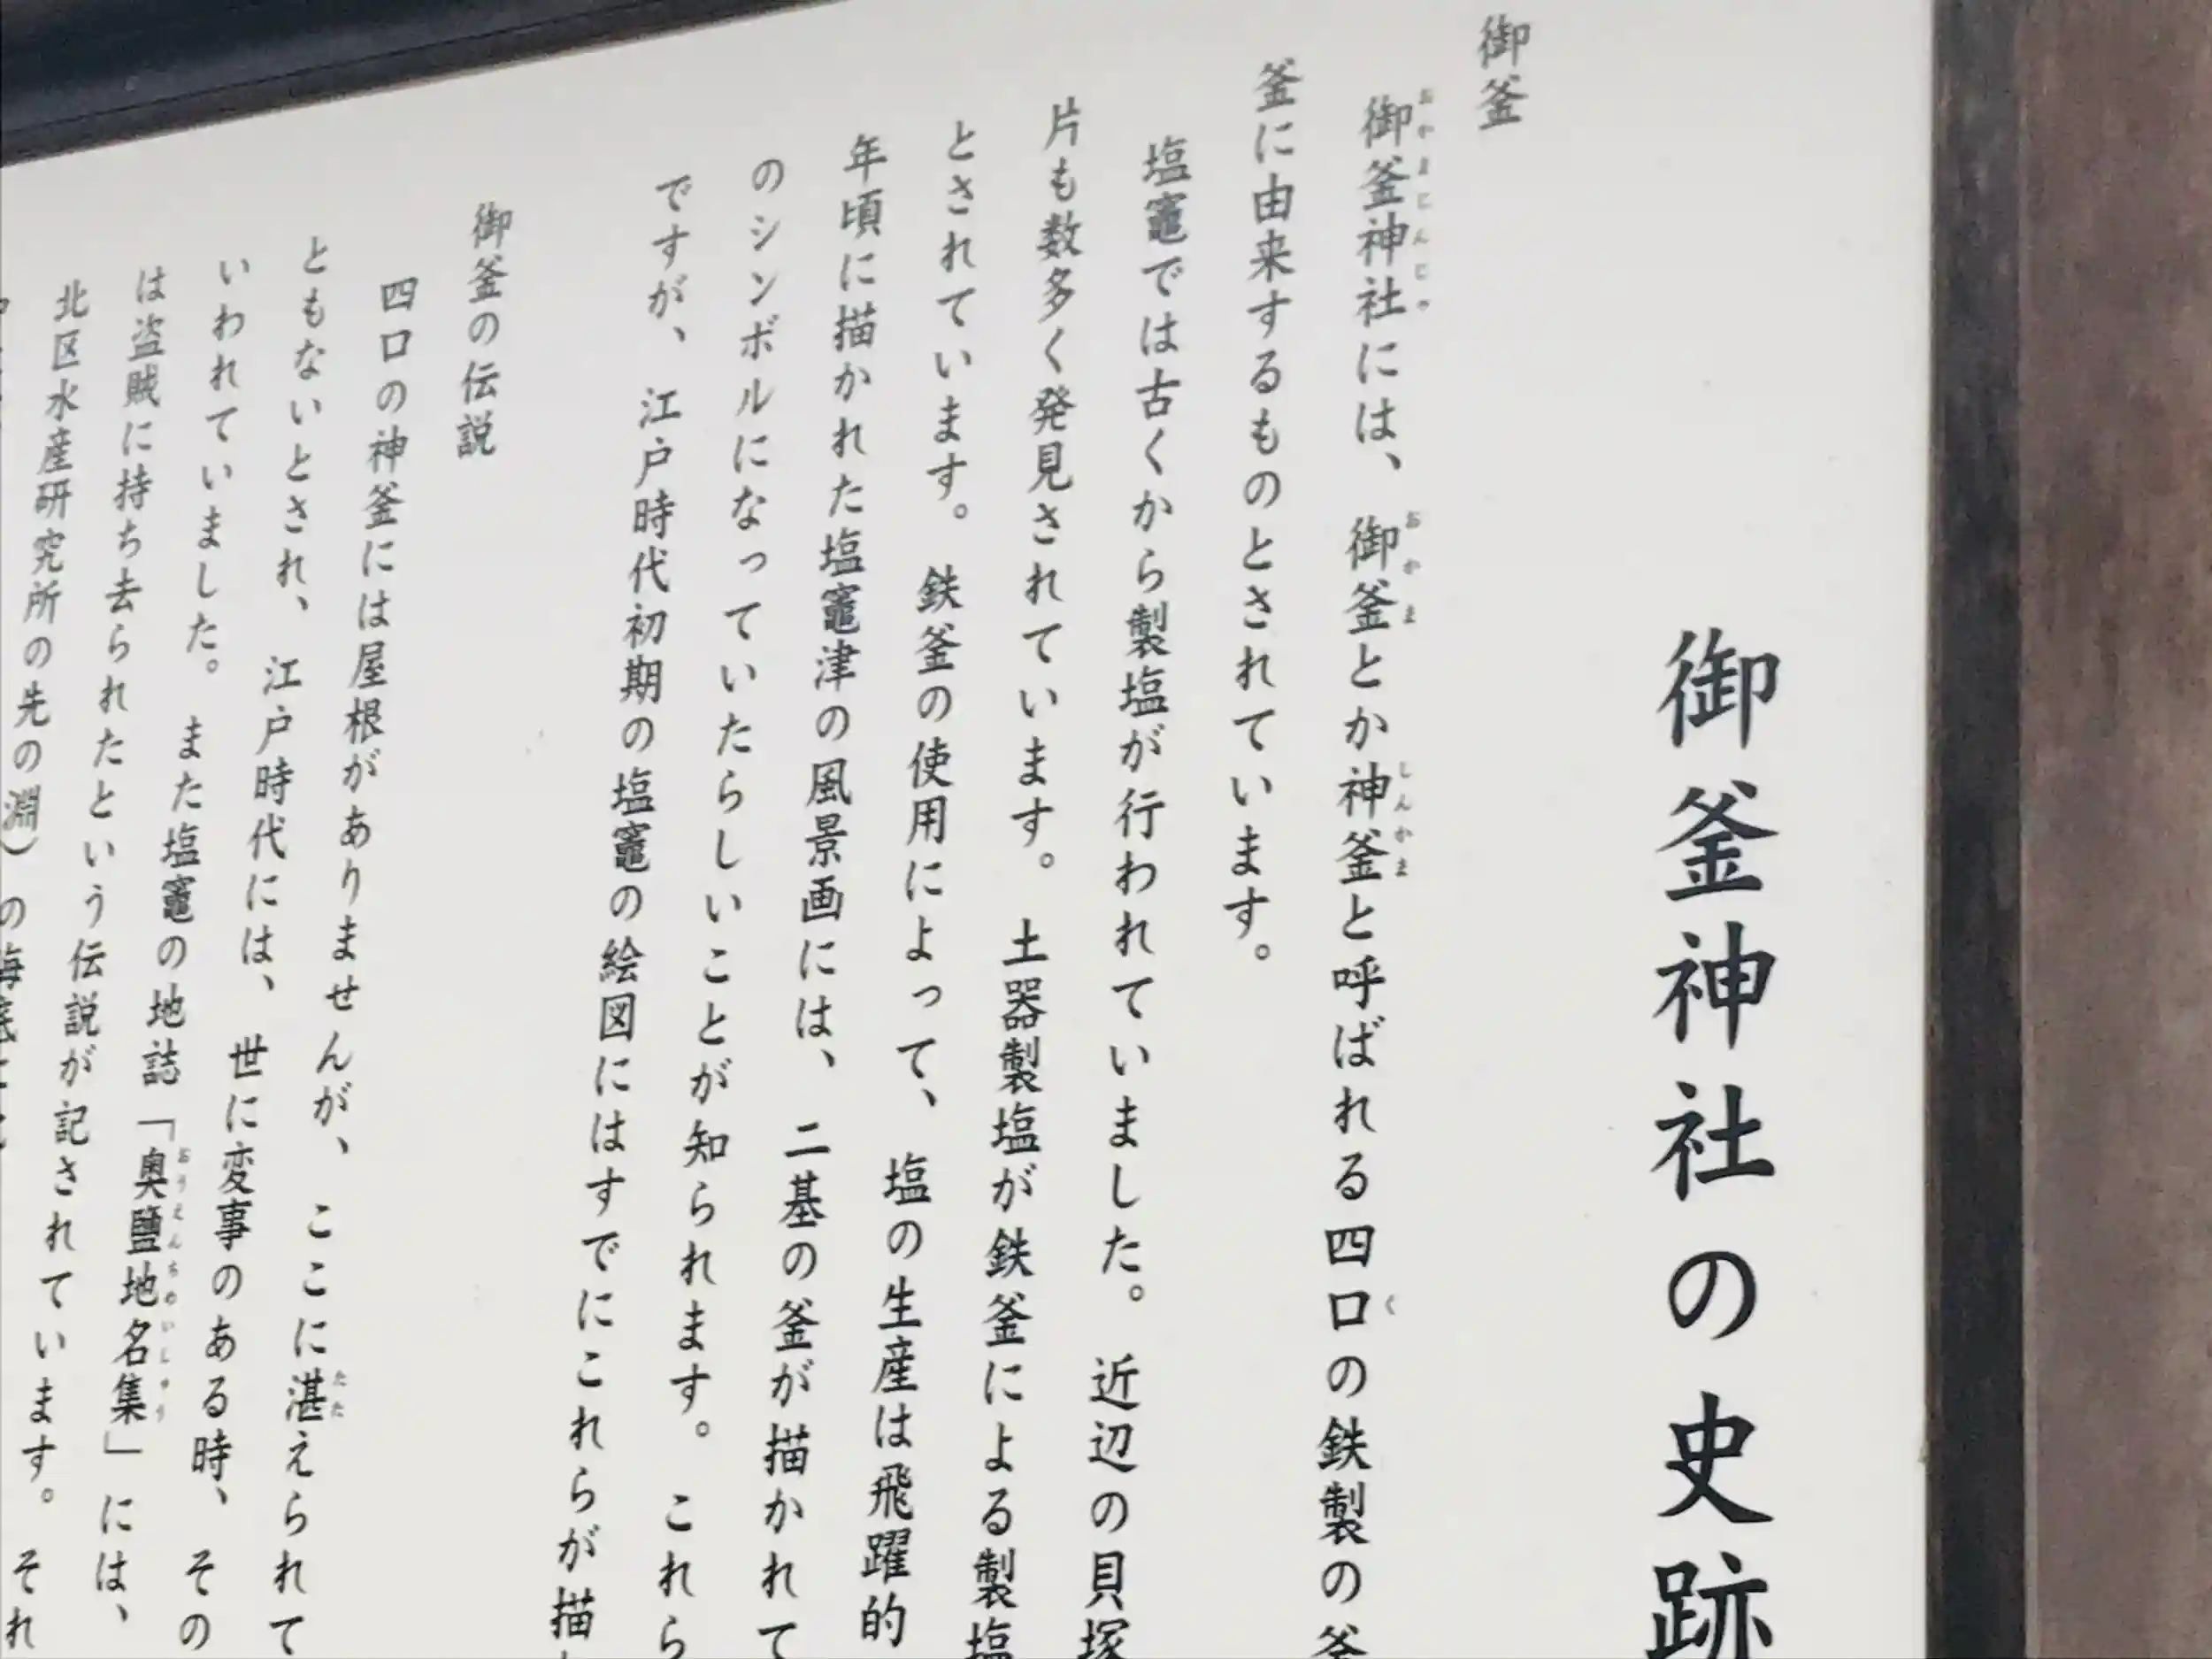 御釜神社の史跡
御釜
御釜神社には、御釜とか神釜と呼ばれる四口の鉄製の釜
釜に由来するものとされています。
塩竈では古くから製塩が行われていました。近辺の貝塚
片も数多く発見されています。土器製塩が鉄釜による製塩
とされています。鉄釜の使用によって、塩の生産は飛躍的
年頃に描かれた塩竈津の風景画には、二基の釜が描かれて
のシンボルになっていたらしいことが知られます。これら
ですが、江戸時代初期の塩竈の絵図にはすでにこれらが描
御釜の伝説
四口の神釜には屋根がありませんが、ここに湛えられて
ともないとされ、江戸時代には、世に変事のある時、その
いわれていました。また塩竈の地誌「奥鹽地名集」には、
は盗賊に持ち去られたという伝説が記されています。それ
北区水産研究所の先の淵）の海底に